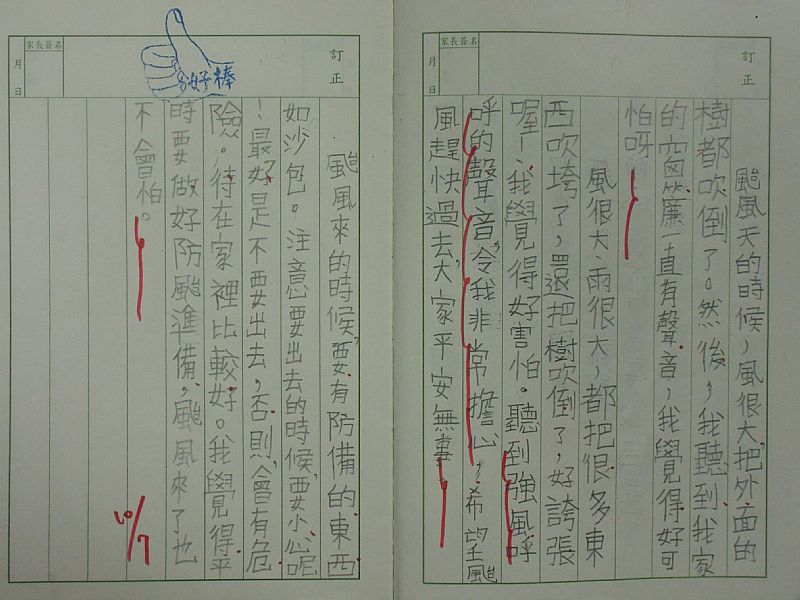 訂正
家長簽名
月 日
颱風天的時候，風很大，把外面的
樹都吹倒了。然後，我聽到我家
的窗簾一直有聲音，我覺得好可
怕呀！
風很大，雨很大，都把很多東
西吹垮了，還把樹吹倒了，好誇張
喔！我覺得好害怕。聽到強風呼
呼的聲音，令我非常擔心，希望颱
風趕快過去，大家平安無事。
訂正
家長簽名
月 日
好棒
颱風來的時候，要有防備的東西
如沙包。注意要出去的時候，要小心呢
！最好是不要出去，否則，會有危
險。待在家裡比較好。我覺得平
時要做好防颱準備，颱風來了也
不會怕。
10/7